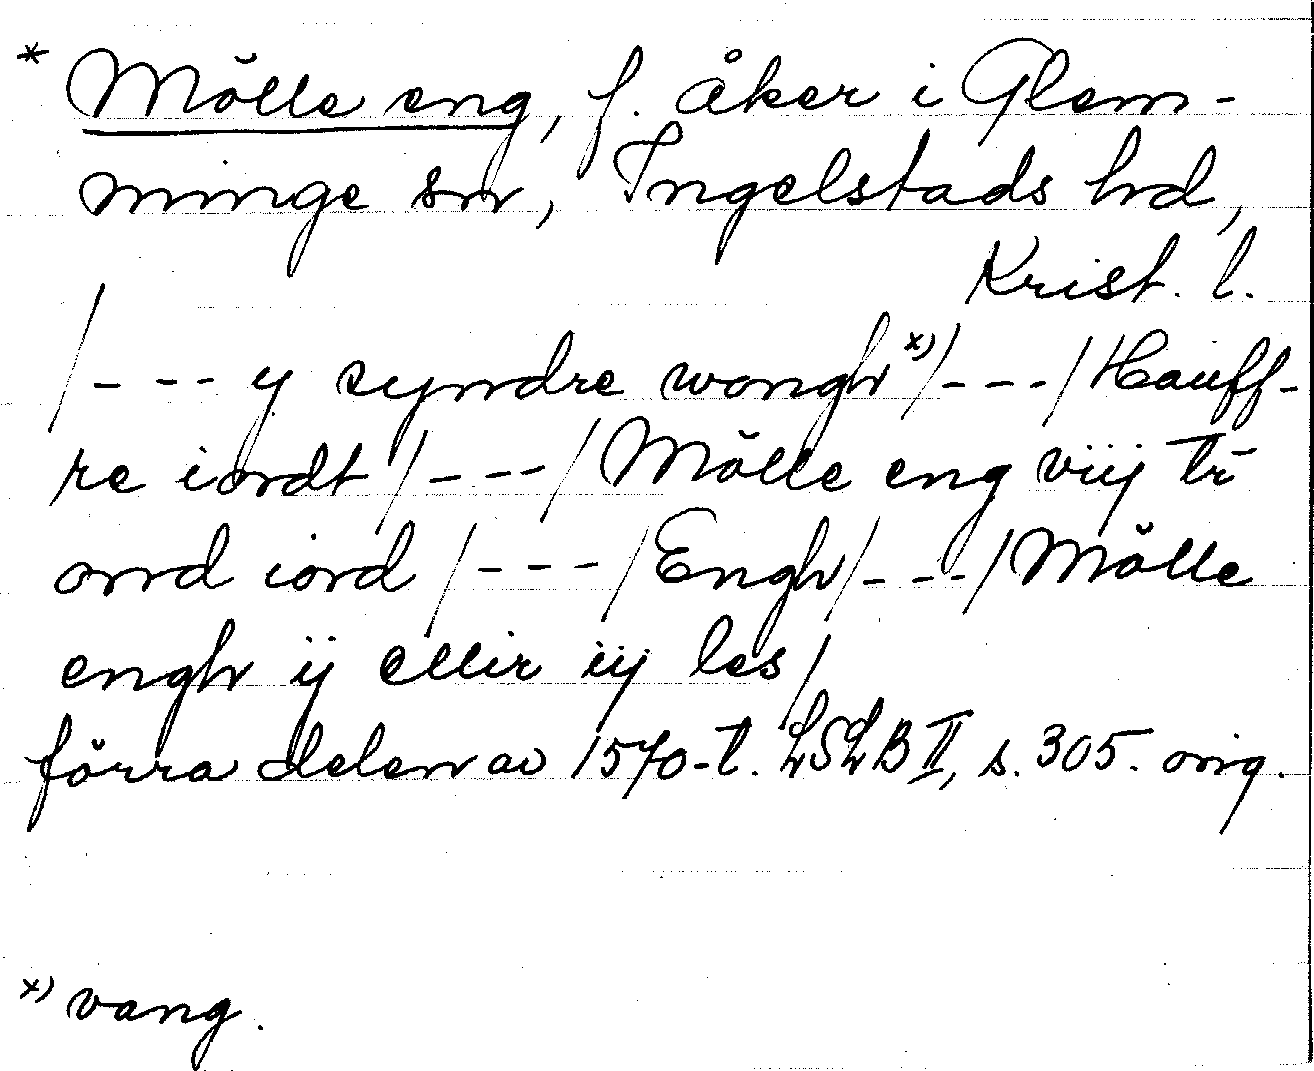 * Mölle eng, f. åker i Glem-
minge sn, Ingelstads hd,
Krist. l.
/--- y syndre wongh x)/---/ Hauff-
re iordt /---/ Mölle eng viij
ond iord /---/ Engh /---/ Mölle
engh ij ellir iij les/
förra delen av 1570-t. LSLB II, s. 305. orig.
x) vang.